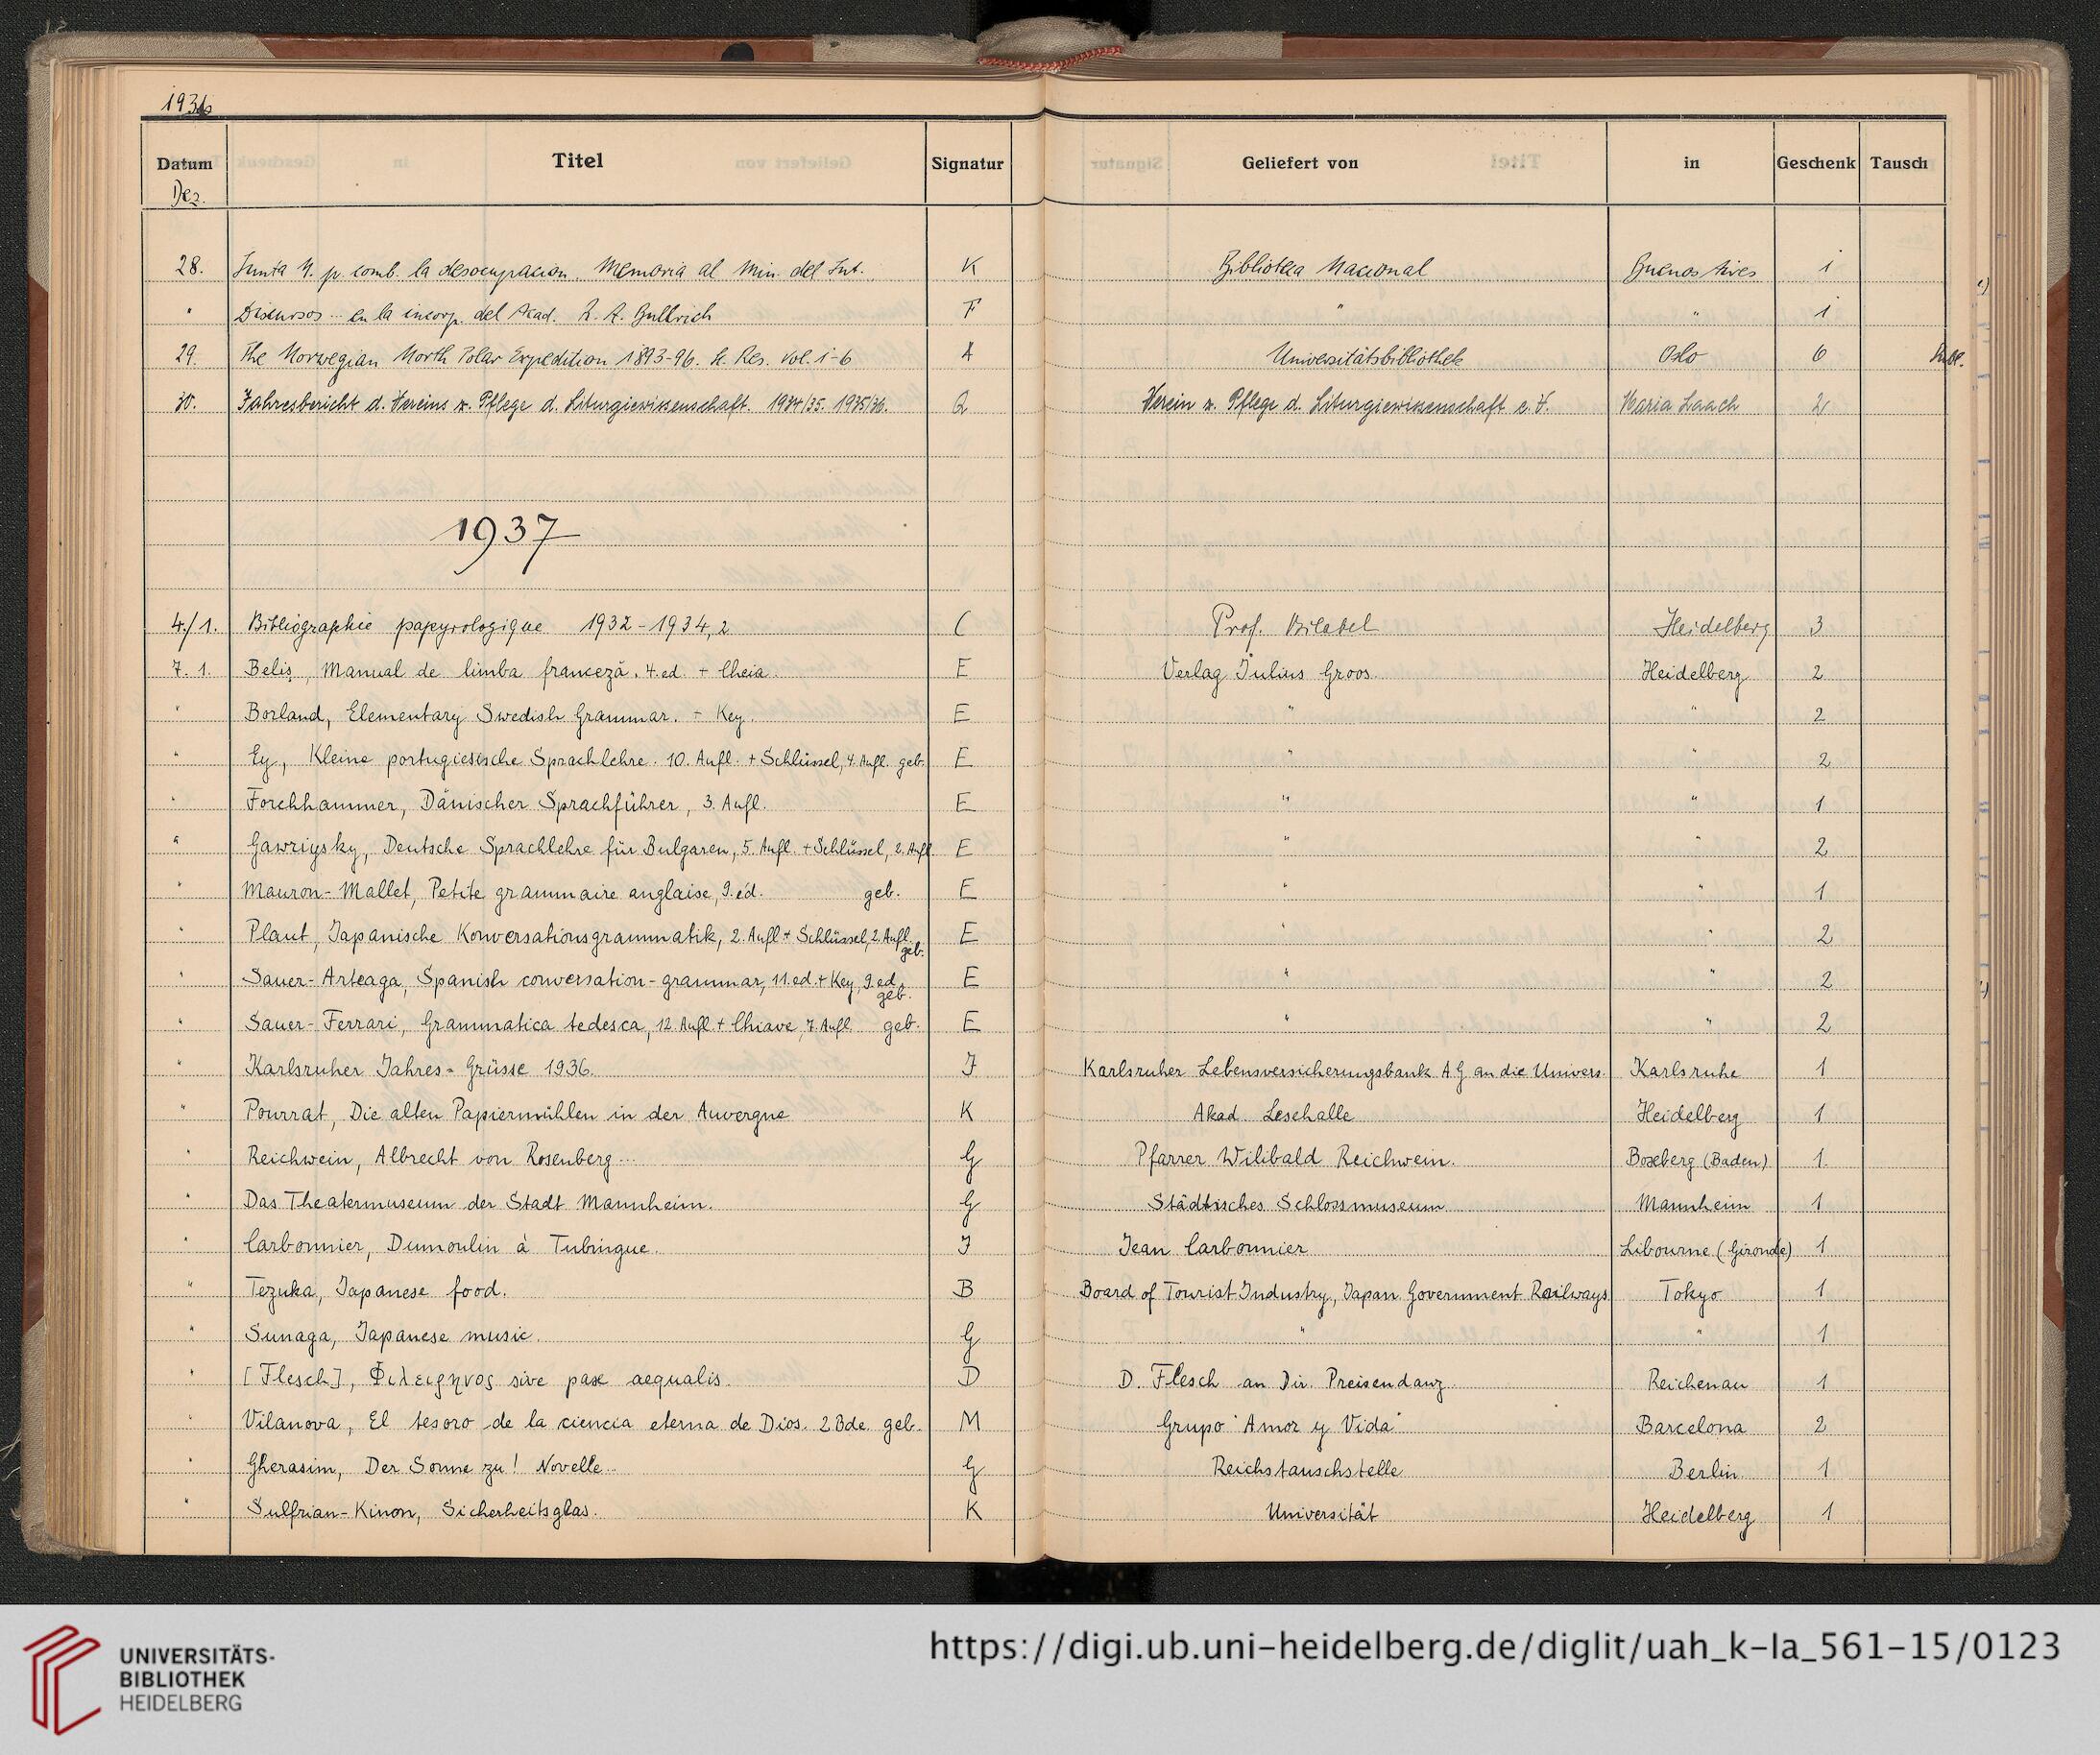 1936
Datum Titel Signatur Geliefert von in Geschenk Tausch
Dez.
28. Junta N. p. comb. la desocupacion. Memoria al Min. del Int. K Biblioteca Nacional Buenos Aires 1
" Discursos ... en la incorp. del Acad. F " " 1
29. The Norwegian North Polar Expedition 1893-96. Sc. Res. Vol. 1-6 A Universitätsbibliothek Oslo 6
30. Jahresbericht d. Vereins z. Pflege d. Liturgiewissenschaft. 1934/35. 1935/36. Q Verein z. Pflege d. Liturgiewissenschaft e. V. Maria Laach 2
1937
4./1. Bibliographie papyrologique 1932-1934,2 C Prof. Bilabel Heidelberg 3
7. 1. Beliş, Manual de limba franceză. 4. ed. + Cheia. E Verlag Julius Groos Heidelberg 2
" Borland, Elementary Swedish Grammar. + Key. E " " 2
" Ey, Kleine portugiesische Sprachlehre. 10. Aufl. + Schlüssel, 4. Aufl. geb. E " " 2
" Forchhammer, Dänischer Sprachführer, 3. Aufl. E " " 1
" Gawriysky, Deutsche Sprachlehre für Bulgaren, 5. Aufl. + Schlüssel, 2. Aufl. E " " 2
" Mauron-Mallet, Petite grammaire anglaise, 9. éd. geb. E " " 1
" Plaut, Japanische Konversationsgrammatik, 2. Aufl. + Schlüssel, 2. Aufl. geb. E " " 2
" Sauer-Arteaga, Spanish conversation-grammar, 11. ed. + Key, 9. ed. geb. E " " 2
" Sauer-Ferrari, Grammatica tedesca, 12. Aufl. + Chiave, 7. Aufl. geb. E " " 2
" Karlsruher Jahres-Grüsse 1936. J Karlsruher Lebensversicherungsbank A G an die Univers. Karlsruhe 1
" Pourrat, Die alten Papiermühlen in der Auvergne K Akad. Lesehalle Heidelberg 1
" Reichwein, Albrecht von Rosenberg ... G Pfarrer Wilibald Reichwein. Boxberg (Baden) 1
" Das Theatermuseum der Stadt Mannheim. G Städtisches Schlossmuseum Mannheim 1
" Carbonnier, Dumoulin à Tubingue. J Jean Carbonnier Libourne (Gironde) 1
" Tezuka, Japanese food. B Board of Tourist Industry, Japan. Government Railways Tokyo 1
" Sunaga, Japanese music. G " " 1
" [Flesch], Φιλειρηνος sive pax aequalis. D D. Flesch an Dir. Preisendanz. Reichenau 1
" Vilanova, El tesoro de la ciencia eterna de Dios. 2 Bde. geb. M Grupo "Amor y Vida" Barcelona 2
" Gherasim, Der Sonne zu! Novelle.. G Reichstauschstelle Berlin 1
" Sulfrian-Kinon, Sicherheitsglas. K Universität Heidelberg 1
UNIVERSITÄTS-
BIBLIOTHEK
HEIDELBERG
https://digi.ub.uni-heidelberg.de/diglit/uah_k-Ia_561-15/0123